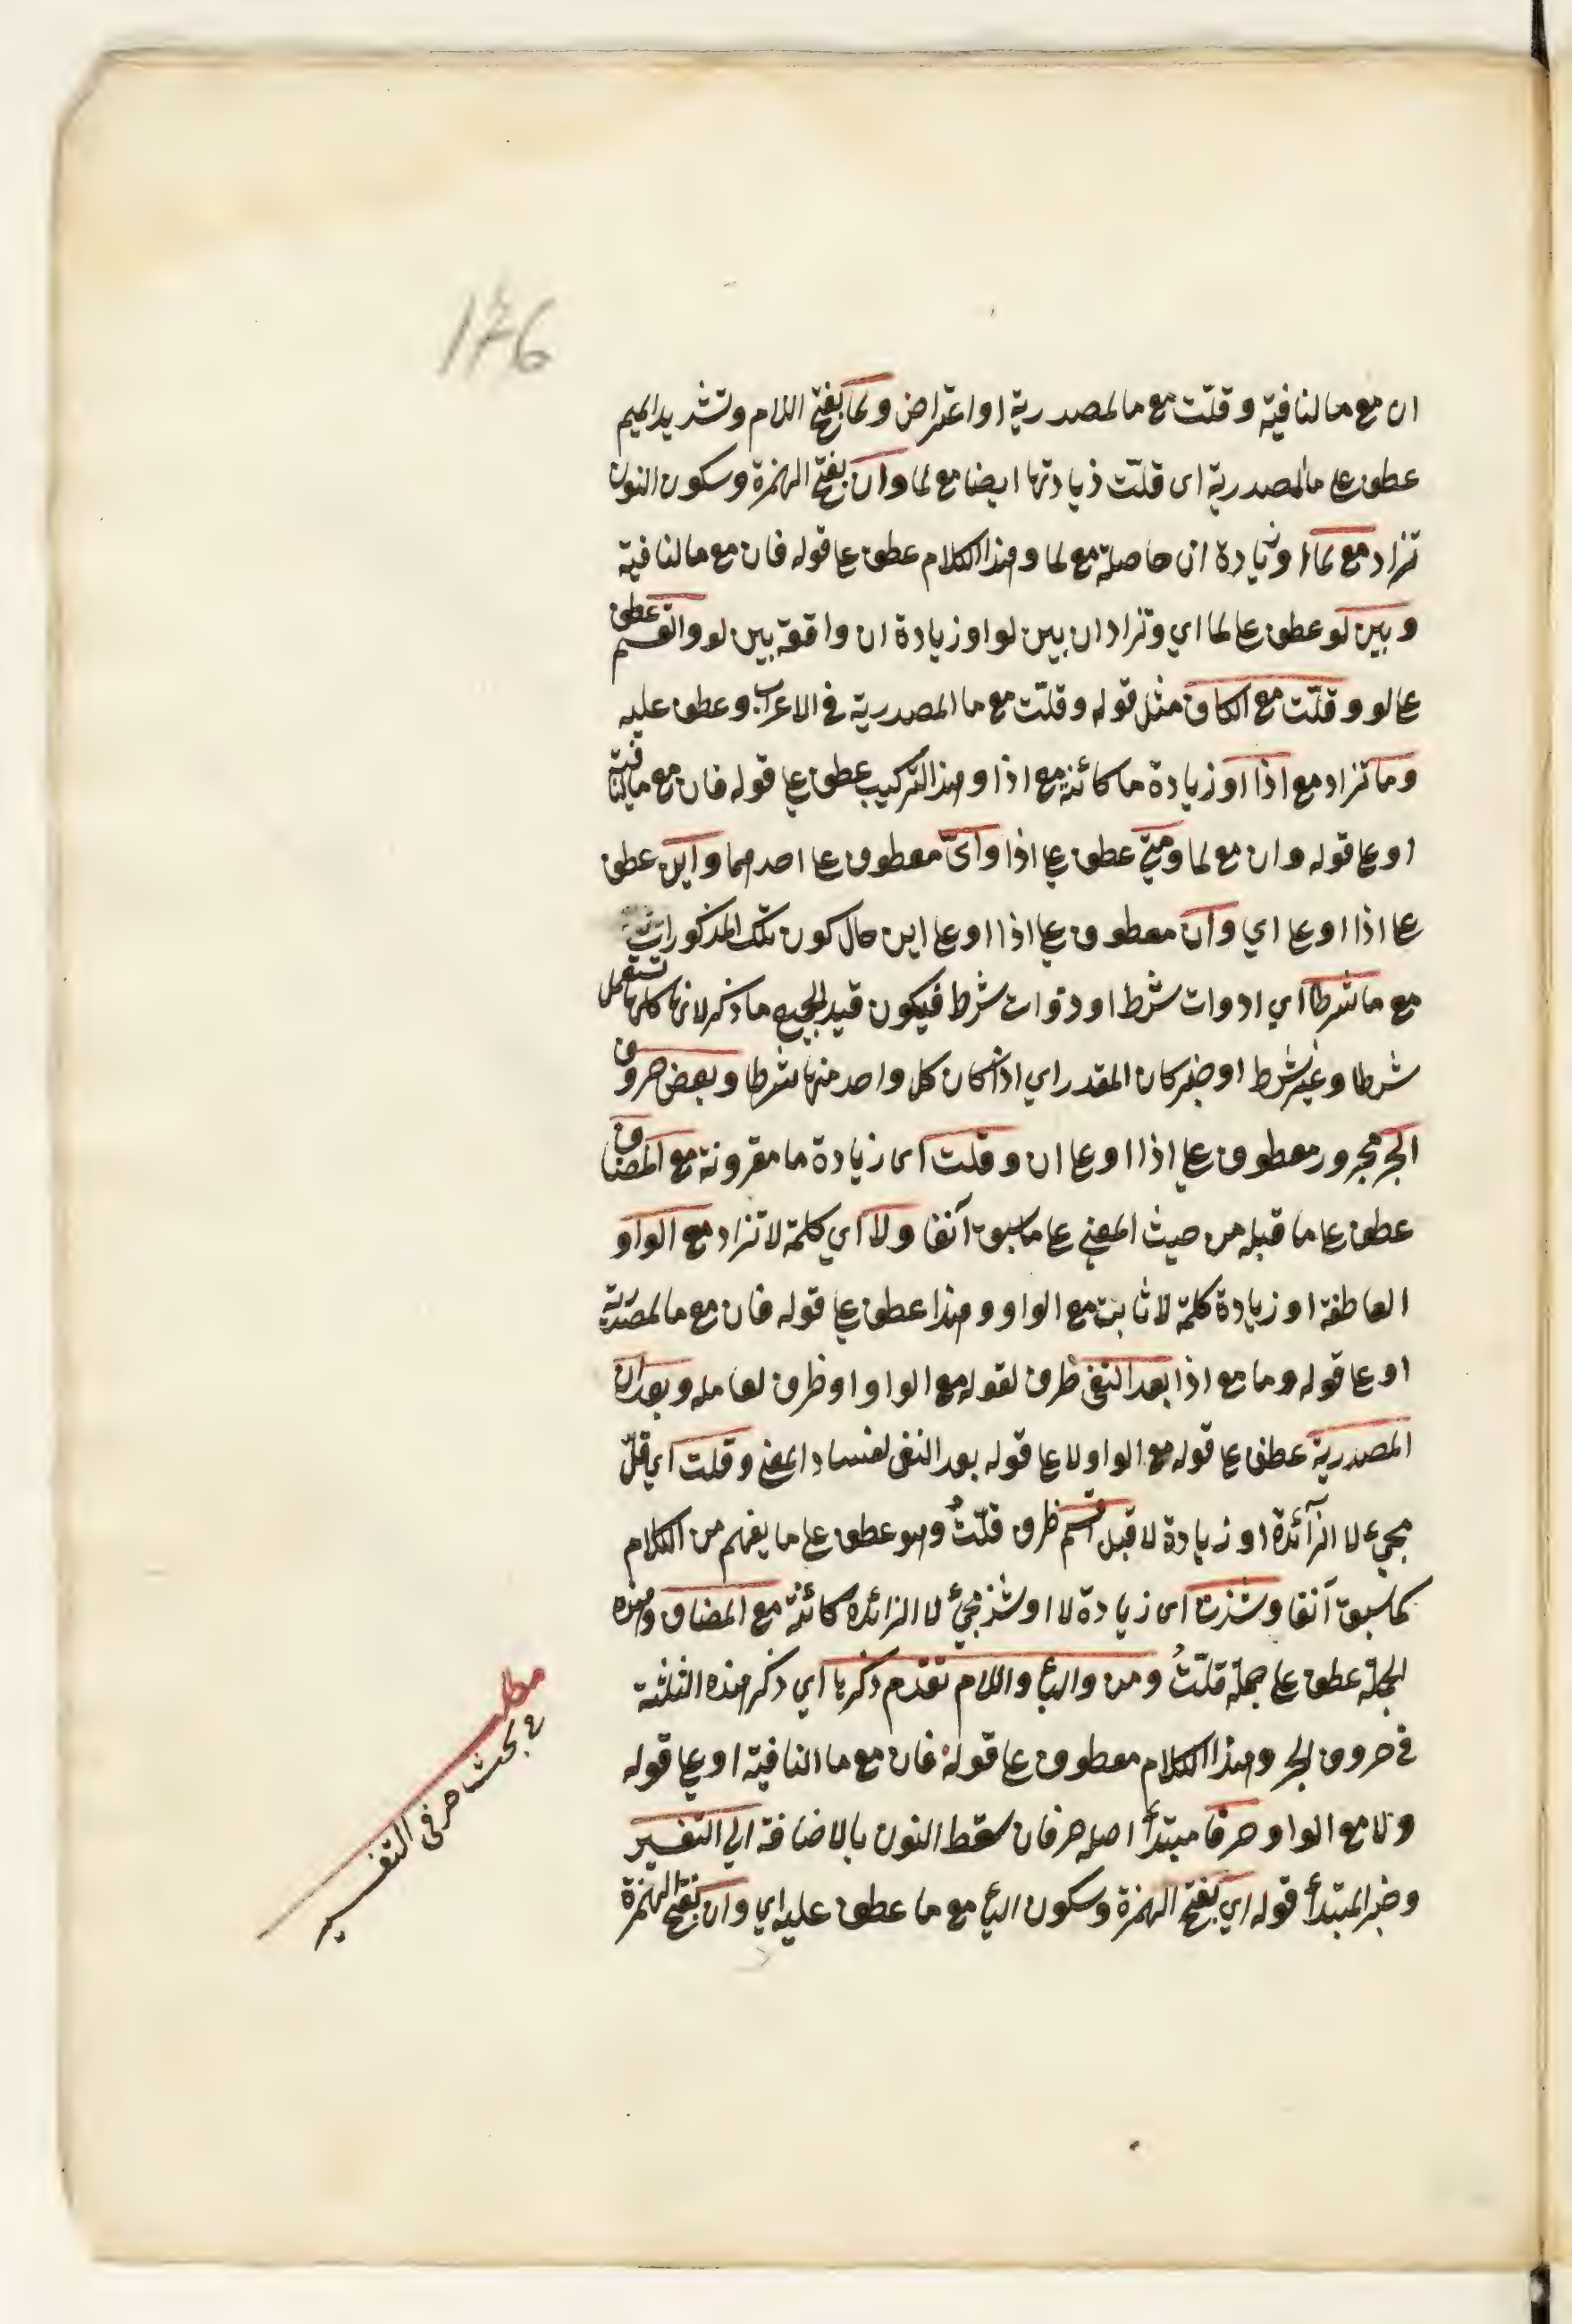 176
ان مع ما لنافية وقلّت مع ما لمصدرية او اعتراض ولما بفتح اللام وتشديد الميم
عطف على ما لمصدرية اى قلّت ذيادتها ايضا مع لما وان بفتح الهمزة وسكون النون
تزاد مع لما او زيادة ان حاصلة مع لما وهذا الكلام عطف على قوله فان مع ما لنافية
وبين لو عطف على لما اي وتزاد ان بين لو او زيادة ان واقعة بين لو والقسم عطف
على لو وقلّت مع الكاف مثل قوله وقلّت مع ما المصدرية في الاعراب وعطف عليه
وما تزاد مع اذا او زيادة ما كائنة مع اذا وهذا التركيب عطف على قوله فان مع ما لنافية
او على قوله وان مع لما ومتى عطف على اذا واىّ معطوف على احدهما واين عطف
على اذا او على اي وان معطوف على اذا او على اين حال كون تلك المذكورات
مع ما شرطا اي ادوات شرط او ذوات شرط فيكون قيد لجميع ما ذكر لانها كلها تستعمل
شرطا وغير شرط او خبر كان المقدر اي اذا كان كل واحد منها شرطا وبعض حروف
الجر مجرور معطوف على اذا او على ان وقلت اى زيادة ما مقرونة مع المضاف
عطف على ما قبله من حيث المعنى على ما سبق آنفا ولا اي كلمة لا تزاد مع الواو
العاطفة او زيادة كلمة لا ثابتة مع الواو وهذا عطف على قوله فان مع ما لمصدرية
او على قوله وما مع اذا بعد النفى ظرف لقوله مع الواو او ظرف لعامله وبعد ان
المصدرية عطف على قوله مع الواو لا على قوله بعد النفى لفساد المعنى وقلت اي قلّ
مجيء لا الزآئدة او زيادة لا قبل اقسم ظرف قلّتْ وهو عطف على ما يفهم من الكلام
كما سبق آنفا وشذت اى زيادة لا او شذ مجئ لا الزائده كائنة مع المضاف وهذه
الجملة عطف على جملة قلّتْ ومن والباء واللام تقدّم ذكرها اي ذكر هذه الثلثة
في حروف الجر وهذا الكلام معطوف على قوله فان مع ما النافية او على قوله
ولا مع الواو حرفا مبتدأ اصله حرفان سقط النون بالاضافة الى التفسير
وخبر المبتدأ قوله اي بفتح الهمزة وسكون الياء مع ما عطف عليه اي وان بفتح الهمزة
مطلب
في بحث حرفى التفسير